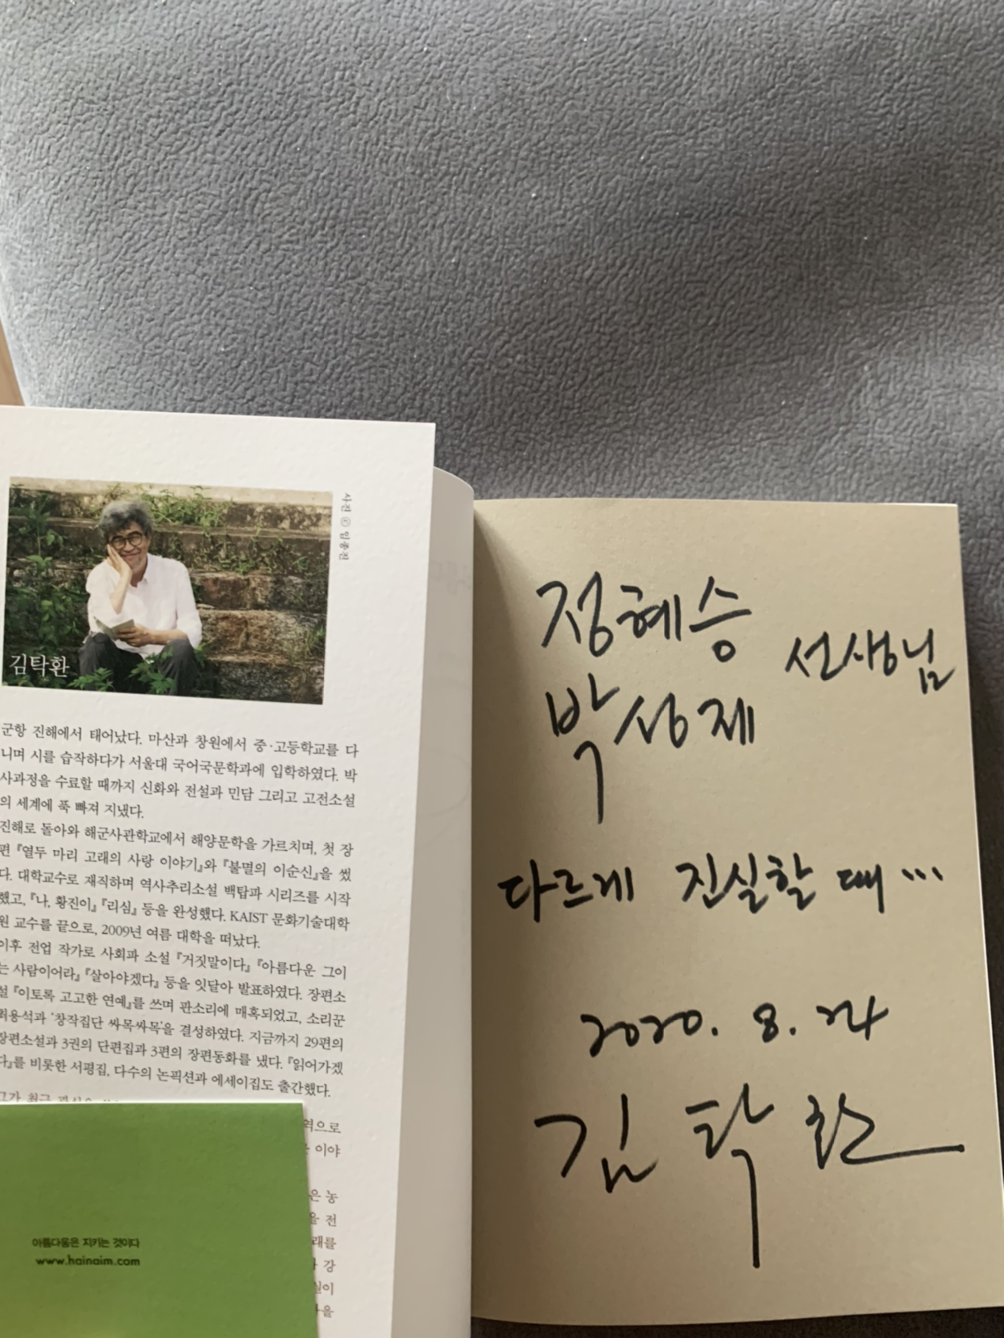 사진 ⓒ 임종진
김탁환
군항 진해에서 태어났다. 마산과 창원에서 중·고등학교를 다
니며 시를 습작하다가 서울대 국어국문학과에 입학하였다. 박
사과정을 수료할 때까지 신화와 전설과 민담 그리고 고전소설
의 세계에 푹 빠져 지냈다.
진해로 돌아와 해군사관학교에서 해양문학을 가르치며, 첫 장
편 『열두 마리 고래의 사랑 이야기』와 『불멸의 이순신』을 썼
다. 대학교수로 재직하며 역사추리소설 백탑파 시리즈를 시작
했고, 『나, 황진이』 『리심』 등을 완성했다. KAIST 문화기술대학
원 교수를 끝으로, 2009년 여름 대학을 떠났다.
이후 전업 작가로 사회파 소설 『거짓말이다』 『아름다운 그이
는 사람이어라』 『살아야겠다』 등을 잇달아 발표하였다. 장편소
설 『이토록 고고한 연예』를 쓰며 판소리에 매혹되었고, 소리꾼
최용석과 '창작집단 싸목싸목'을 결성하였다. 지금까지 29편의
장편소설과 3권의 단편집과 3편의 장편동화를 냈다. 『읽어가겠
다』를 비롯한 서평집, 다수의 논픽션과 에세이집도 출간했다.
역으로
이야
은 농
을 전
래를
강
아름다움은 지키는 것이다
www.hainaim.com
정혜승
박성제 선생님
다르게 진실할 때…
2020. 8. 24
김탁환